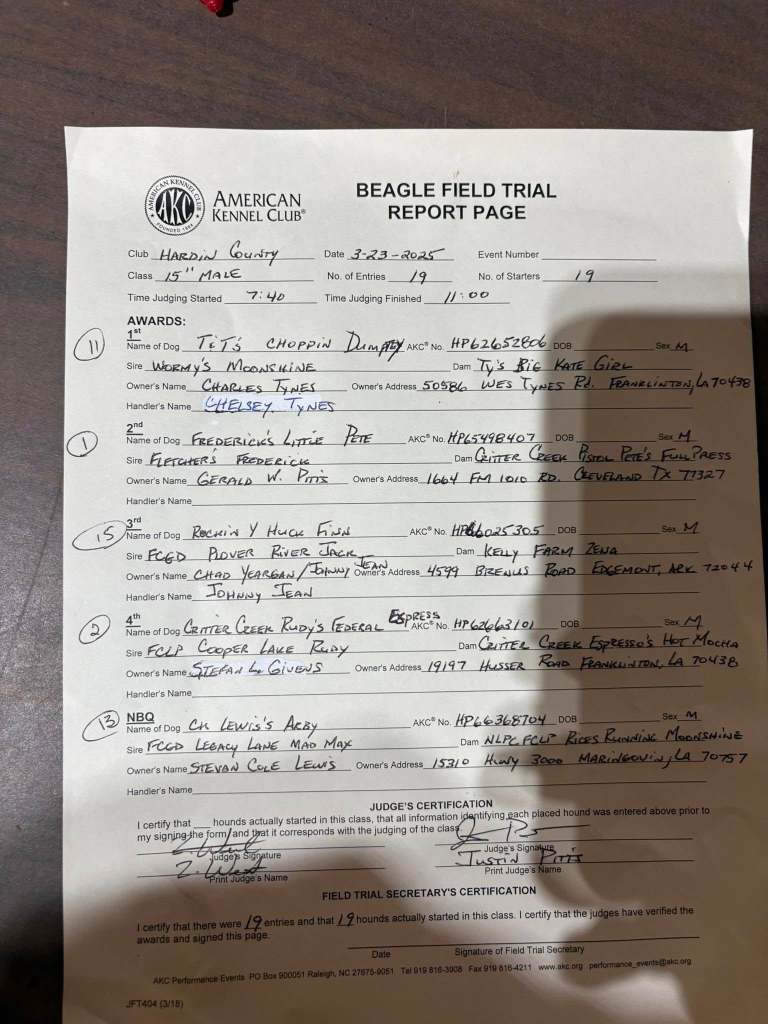 AMERICAN KENNEL CLUB
AKC
FOUNDED 1884
AMERICAN
KENNEL CLUB®
BEAGLE FIELD TRIAL
REPORT PAGE
Club HARDIN COUNTY Date 3-23-2025 Event Number
Class 15" MALE No. of Entries 19 No. of Starters 19
Time Judging Started 7:40 Time Judging Finished 11:00
AWARDS:
1st
11 Name of Dog T&T'S CHOPPIN DUMPTY AKC® No. HP62652806 DOB Sex M
Sire WORMY'S MOONSHINE Dam TY'S BIG KATE GIRL
Owner's Name CHARLES TYNES Owner's Address 50586 WES TYNES RD. FRANKLINTON, LA 70438
Handler's Name CHELSEY TYNES
2nd
1 Name of Dog FREDERICK'S LITTLE PETE AKC® No. HP65498407 DOB Sex M
Sire FLETCHER'S FREDERICK Dam CRITTER CREEK PISTOL PETE'S FULL PRESS
Owner's Name GERALD W. PITTS Owner's Address 1664 FM 1010 RD. CLEVELAND TX 77327
Handler's Name
3rd
15 Name of Dog ROCKIN Y HUCK FINN AKC® No. HP66025305 DOB Sex M
Sire FCGD PLOVER RIVER JACK Dam KELLY FARM ZENA
Owner's Name CHAD YEARGAN/JOHNNY JEAN Owner's Address 4599 BRENUS ROAD EDGEMONT, ARK 72044
Handler's Name JOHNNY JEAN
4th
2 Name of Dog CRITTER CREEK RUDY'S FEDERAL EXPRESS AKC® No. HP62663101 DOB Sex M
Sire FCLP COOPER LAKE RUDY Dam CRITTER CREEK ESPRESSO'S HOT MOCHA
Owner's Name STEFAN L. GIVENS Owner's Address 19197 HUSSER ROAD FRANKLINTON, LA 70438
Handler's Name
NBQ
13 Name of Dog CK LEWIS'S ARBY AKC® No. HP66368704 DOB Sex M
Sire FCGD LEGACY LANE MAD MAX Dam NLPC FCLP RICES RUNNING MOONSHINE
Owner's Name STEVAN COLE LEWIS Owner's Address 15310 HWY 3000 MARINGOVIN, LA 70757
Handler's Name
JUDGE'S CERTIFICATION
I certify that ___ hounds actually started in this class, that all information identifying each placed hound was entered above prior to
my signing the form, and that it corresponds with the judging of the class.
Judge's Signature Judge's Signature
Z. West JUSTIN PITTS
Print Judge's Name Print Judge's Name
FIELD TRIAL SECRETARY'S CERTIFICATION
I certify that there were 19 entries and that 19 hounds actually started in this class. I certify that the judges have verified the
awards and signed this page.
Date Signature of Field Trial Secretary
AKC Performance Events PO Box 900051 Raleigh, NC 27675-9051 Tel 919 816-3908 Fax 919 816-4211 www.akc.org performance_events@akc.org
JFT404 (3/18)